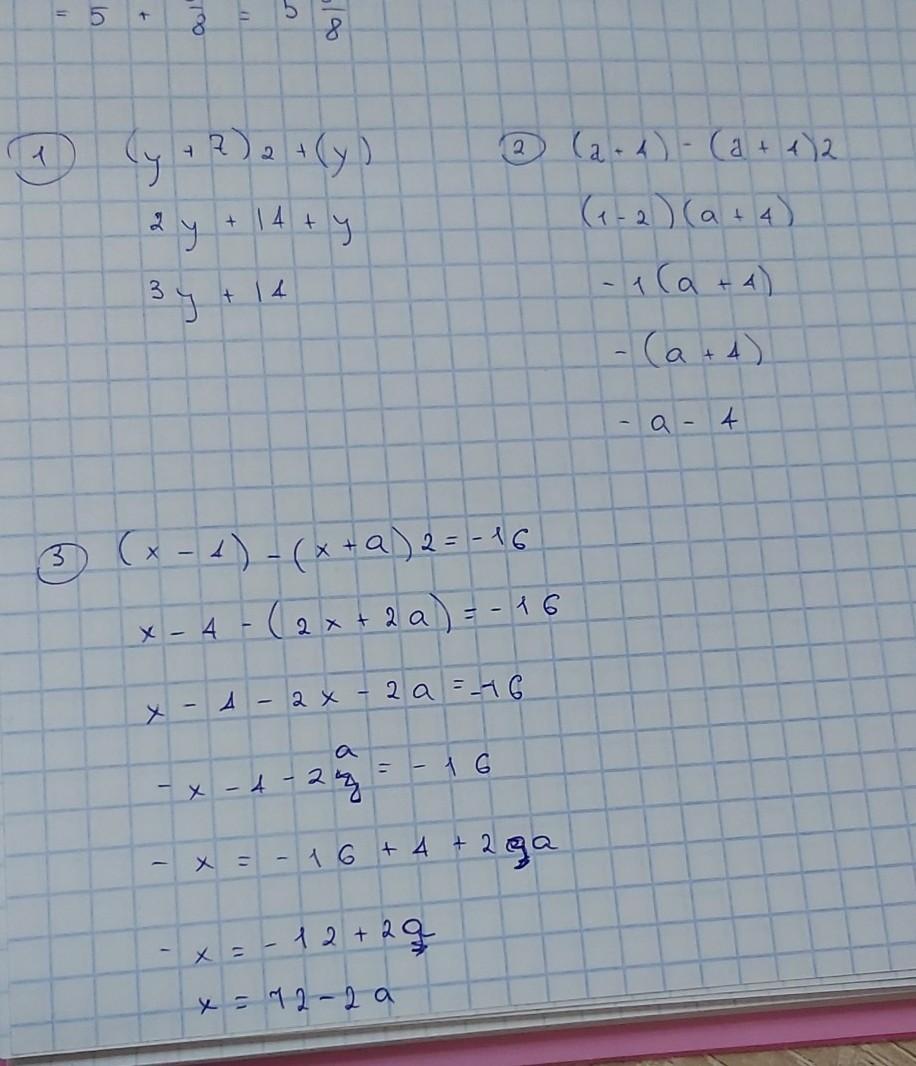 = 5 + /8 = 5 /8
① (y + 7) 2 + (y)
2y + 14 + y
3y + 14
② (a + 4) - (a + 4)2
(1 - 2)(a + 4)
- 1(a + 4)
- (a + 4)
- a - 4
③ (x - 4) - (x + a) 2 = -16
x - 4 - (2x + 2a) = -16
x - 4 - 2x - 2a = -16
- x - 4 - 2a = - 16
- x = - 16 + 4 + 2a
- x = - 12 + 2a
x = 12 - 2a